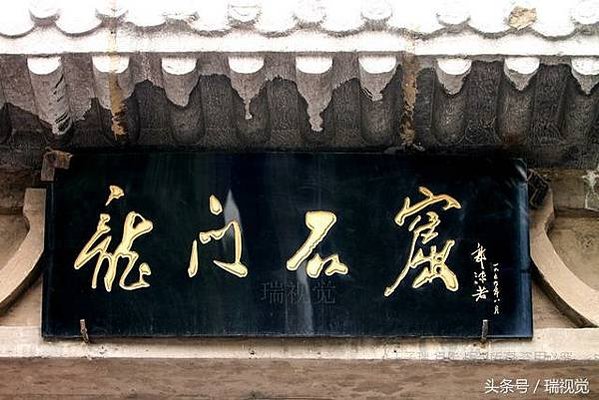 龍门石窟
一九五九年八月
郭沫若
瑞视觉
头条号 / 瑞视觉